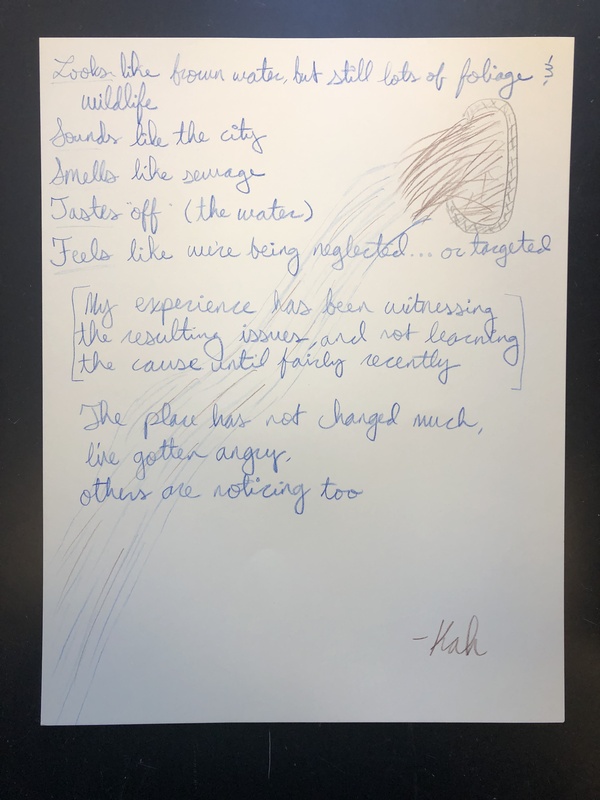 Looks like brown water, but still lots of foliage &
wildlife
Sounds like the city
Smells like sewage
Tastes "off" (the water)
Feels like we're being neglected... or targeted
[My experience has been witnessing
the resulting issues, and not learning
the cause until fairly recently]
The place has not changed much,
I've gotten angry,
others are noticing too
-Kah